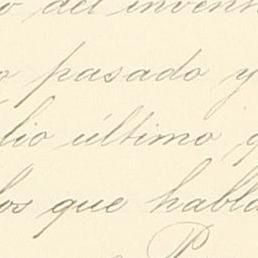 o del invent
o pasado y
lio último q
los que habla
P